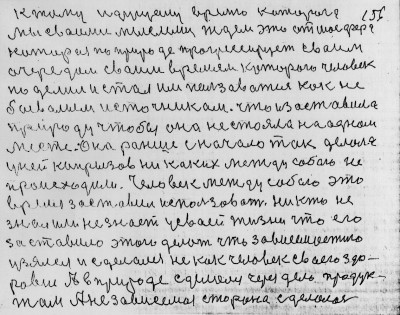 к тому идущему время которого (56
мы своими мыслями ждем это атмосфера
которая по природе прогрессирует своим
очередом своим временем которого человек
поделил и стал им ползоватся как не
бывалым источникам. что и заставила
природу чтобы она нестояла на одном
месте. Она раньше сначало так делала
у ней капризов никаких между собою не
происходили. Человек между собою это
время заставил использоват. никто не
знал или незнает у своей жизни что его
заставило этого делат что зависимостию
узялся и сделался не как человек своего здо-
ровия А в природе сделали через дело продук-
там А независемая сторона сделалася